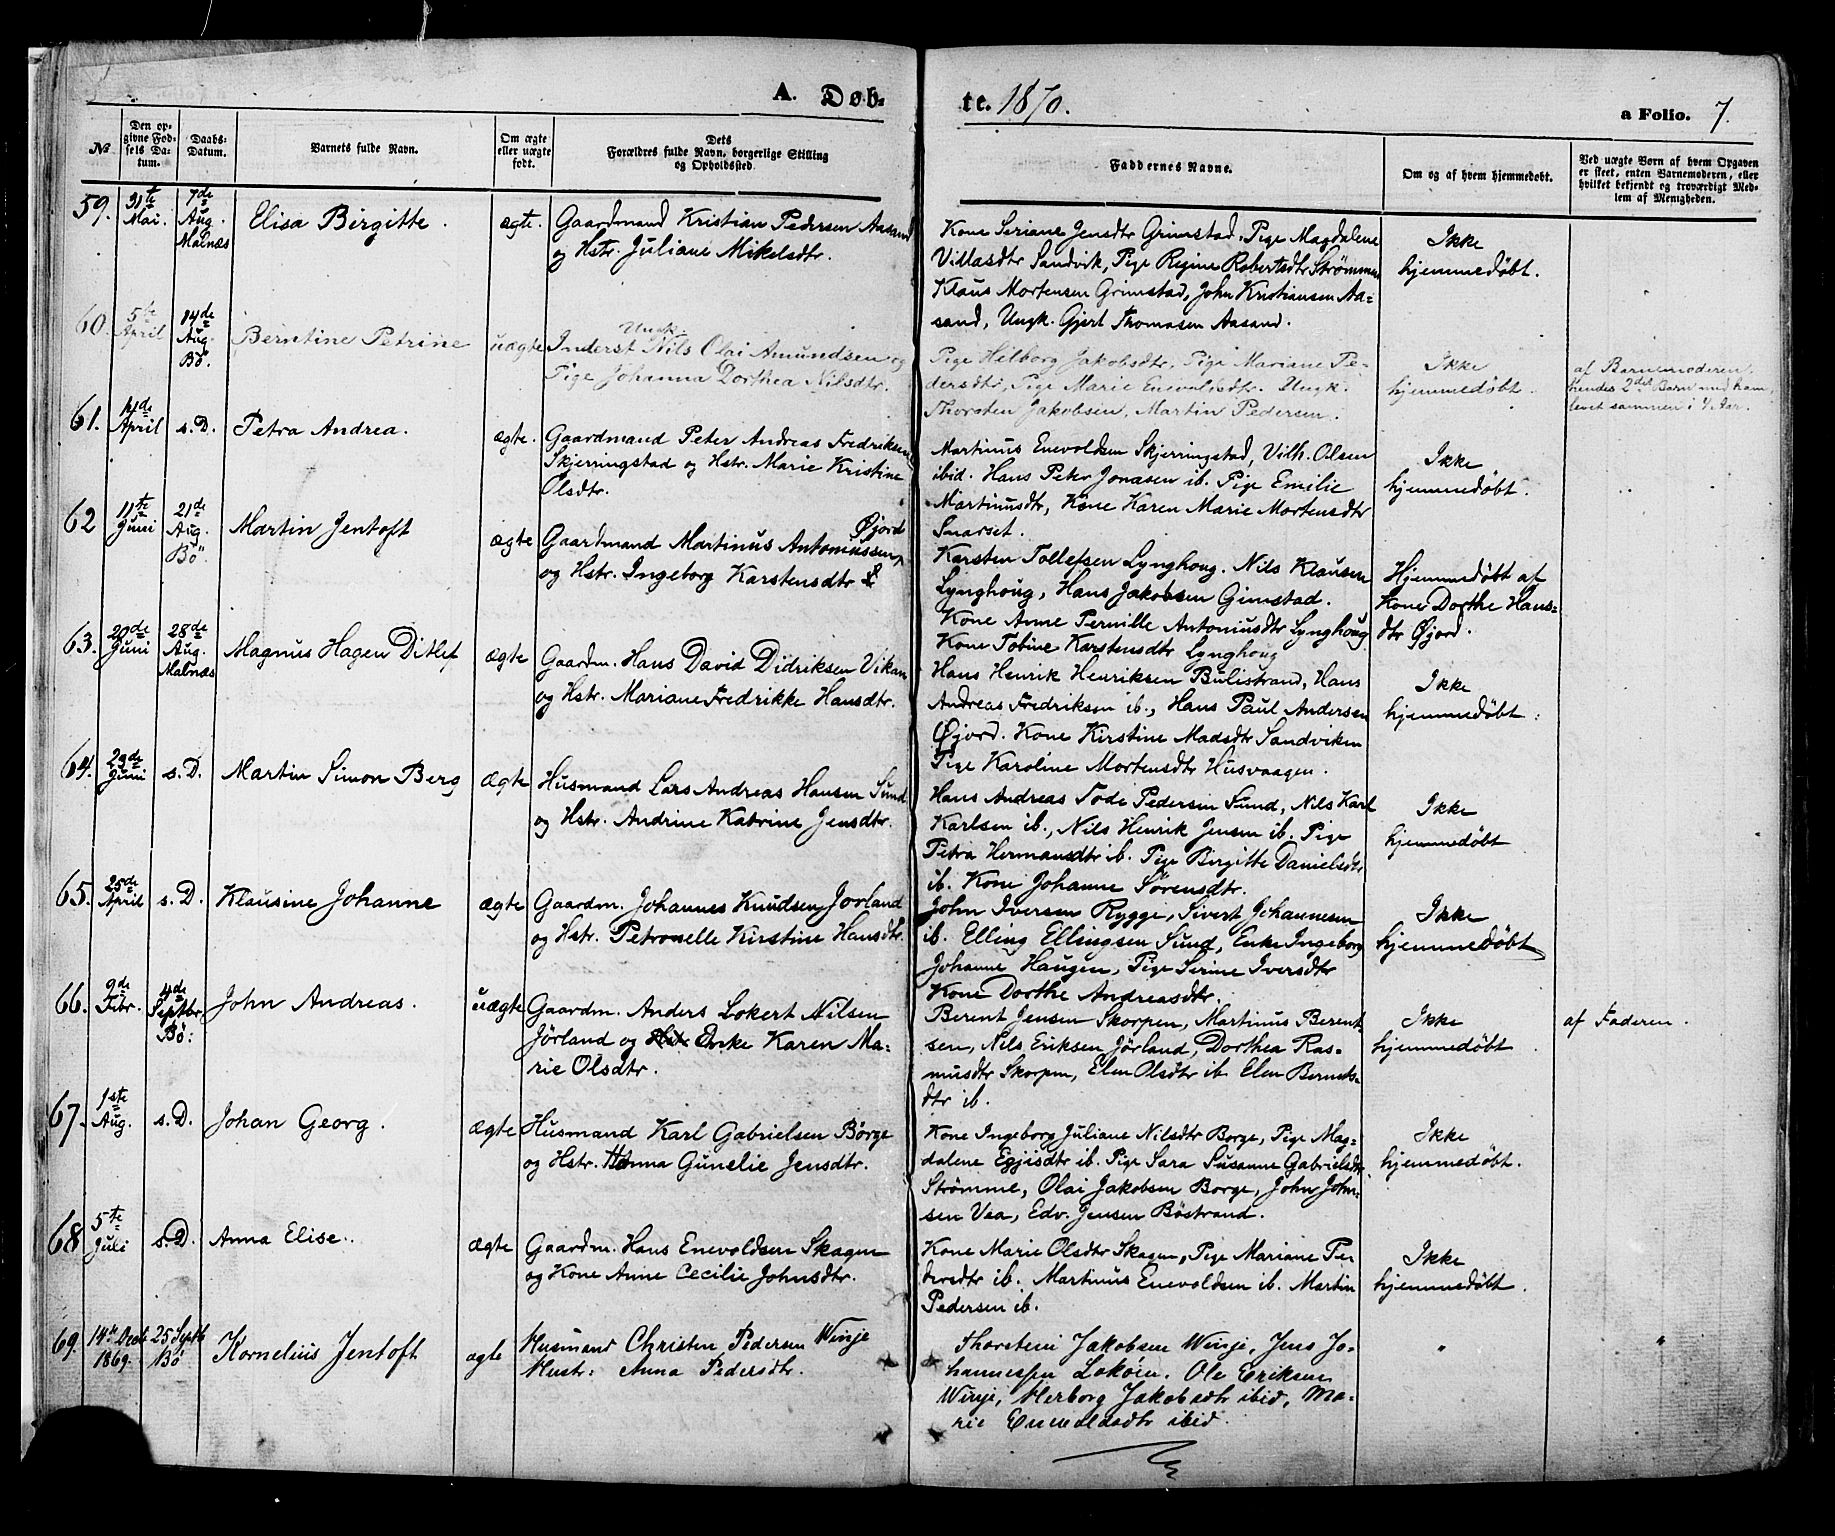 A. Døb-
te. 1870.
a Folio. 7.
№
Den op-
givne Fød-
sels Da-
tum.
Daabs-
Datum.
Barnets fulde Navn.
Om ægte
eller uægte
født.
Dets
Forældres fulde Navn, borgerlige Stilling
og Opholdssted.
Faddernes Navne.
Om og af hvem hjemmedøbt.
Ved uægte Børn af hvem Opgaven
er skeet, enten Barnemoderen, eller
hvilket bekjendt og troværdigt Med-
lem af Menigheden.
59.
31te
Mai.
7de
Aug.
Malnæs
Elisa Birgitte.
ægte.
Gaardmand Kristian Pedersen Aasand
og Hstr. Juliane Mikelsdtr.
Kone Seriane Jensdtr Grimstad, Pige Magdalene
Villasdtr Sandvik, Pige Regine Robertsdtr Strømmen
Klaus Mortensen Grimstad, John Kristiansen Aa-
sand, Ungk. Gjert Thomasen Aasand.
Ikke
hjemmedøbt.
60.
5te
April
14de
Aug.
Bö.
Berntine Petrine
uægte
Ungk.
Inderst Nils Olai Amundsen og
Pige Johanna Dorthea Nilsdtr.
Pige Helborg Jakobsdtr, Pige Mariane Pe-
dersdtr, Pige Marie Enevoldsdtr. Ungk.
Thorsten Jakobsen, Martin Pedersen.
Ikke
hjemmedøbt.
af Barnemoderen,
hendes 2det Barn med ham,
levet sammen i 4 Aar.
61.
April
s. D.
Petra Andrea.
ægte.
Gaardmand Peter Andreas Fredriksen
Skjerringstad og Hstr. Marie Kristine
Olsdtr.
Martinus Enevoldsen Skjerringstad, Vilh. Olsen
ibid. Hans Peter Jonasen ib. Pige Emilie
Martinusdtr, Kone Karen Marie Mortensdtr
Snarset.
Ikke
hjemmedøbt.
62
11te
Juni
21de
Aug.
Bö
Martin Jentoft
ægte
Gaardmand Martinus Antoniussen Øjord
og Hstr. Ingeborg Karstensdtr
Karsten Tollefsen Lynghoug. Nils Klausen
Lynghoug, Hans Jakobsen Gimstad.
Kone Anne Pernille Antoniusdtr Lynghoug
Kone Tobine Karstensdtr Lynghoug
Hjemmedøbt af
Kone Dorthe Hans-
dtr Øjord.
63.
20de
Juni
28de
Aug.
Malnæs
Magnus Hagen Ditlef
ægte
Gaardm. Hans David Didriksen Vikan
og Hstr. Mariane Fredrikke Hansdtr.
Hans Henrik Henriksen Bulistrand, Hans
Andreas Fredriksen ib., Hans Paul Andersen
Øjord. Kone Kirstine Madsdtr Sandviken
Pige Karoline Mortensdtr Husvaagen.
Ikke
hjemmedøbt.
64.
23de
Juni
s. D.
Martin Simon Berg
ægte
Husmand Lars Andreas Hansen Sund
og Hstr. Andrine Katrine Jensdtr.
Hans Andreas Tode Pedersen Sund, Nils Karl
Karlsen ib., Nils Henrik Jensen ib. Pige
Petra Hermansdtr ib. Pige Birgitte Danielsdtr
ib. Kone Johanne Sörensdtr.
Ikke
hjemmedøbt
65.
25de
April
s. D.
Klausine Johanne
ægte
Gaardm. Johannes Knudsen Jorland
og Hstr. Petronelle Kirstine Hansdtr.
John Iversen Rygge, Sivert Johannesen
ib. Elling Ellingsen Sund, Enke Ingeborg
Johanne Haugen, Pige Serine Iversdtr
Kone Dorthe Andreasdtr.
Ikke
hjemmedøbt
66.
9de
Febr.
4de
Septbr
Bö.
John Andreas.
uægte
Gaardm. Anders Lokert Nilsen
Jörland og Enke Karen Ma-
rie Olsdtr.
Berent Jensen Skorpen, Martinus Berent
sen, Nils Eriksen Jörland, Dorthea Ras-
musdtr Skorpen, Elen Olsdtr ib. Elen Bernts-
dtr ib.
Ikke
hjemmedøbt
af Faderen.
67.
1ste
Aug.
s. D.
Johan Georg.
ægte
Husmand Karl Gabrielsen Börge
og Hstr. Anna Gunelie Jensdtr.
Kone Ingeborg Juliane Nilsdtr Borge, Pige Mag-
dalene ib. Pige Sara Susanne Gabrielsdtr
Strömme, Olai Jakobsen Borge, John John-
sen Vea, Edv. Jensen Böstrand.
Ikke
hjemmedøbt.
68
5te
Juli
s. D.
Anna Elise.
ægte
Gaardm. Hans Enevoldsen Skagen
og Kone Anne Cecilie Johnsdtr.
Kone Marie Olsdtr Skagen, Pige Mariane Pe-
dersdtr ib. Martinus Enevoldsen ib. Martin
Pedersen ib.
Ikke
hjemmedøbt.
69.
14de Decbr
1869.
25 Septb
Bö
Kornelius Jentoft
ægte
Husmand Christen Pedersen Winje
Hustr: Anna Pedersdtr.
Thorstein Jakobsen Winje, Jens Jo-
hannessen Loköen. Ole Eriksen
Winje, Herborg Jakobsdtr ibid, Ma-
rie Enevoldsdtr ibid.
"
"